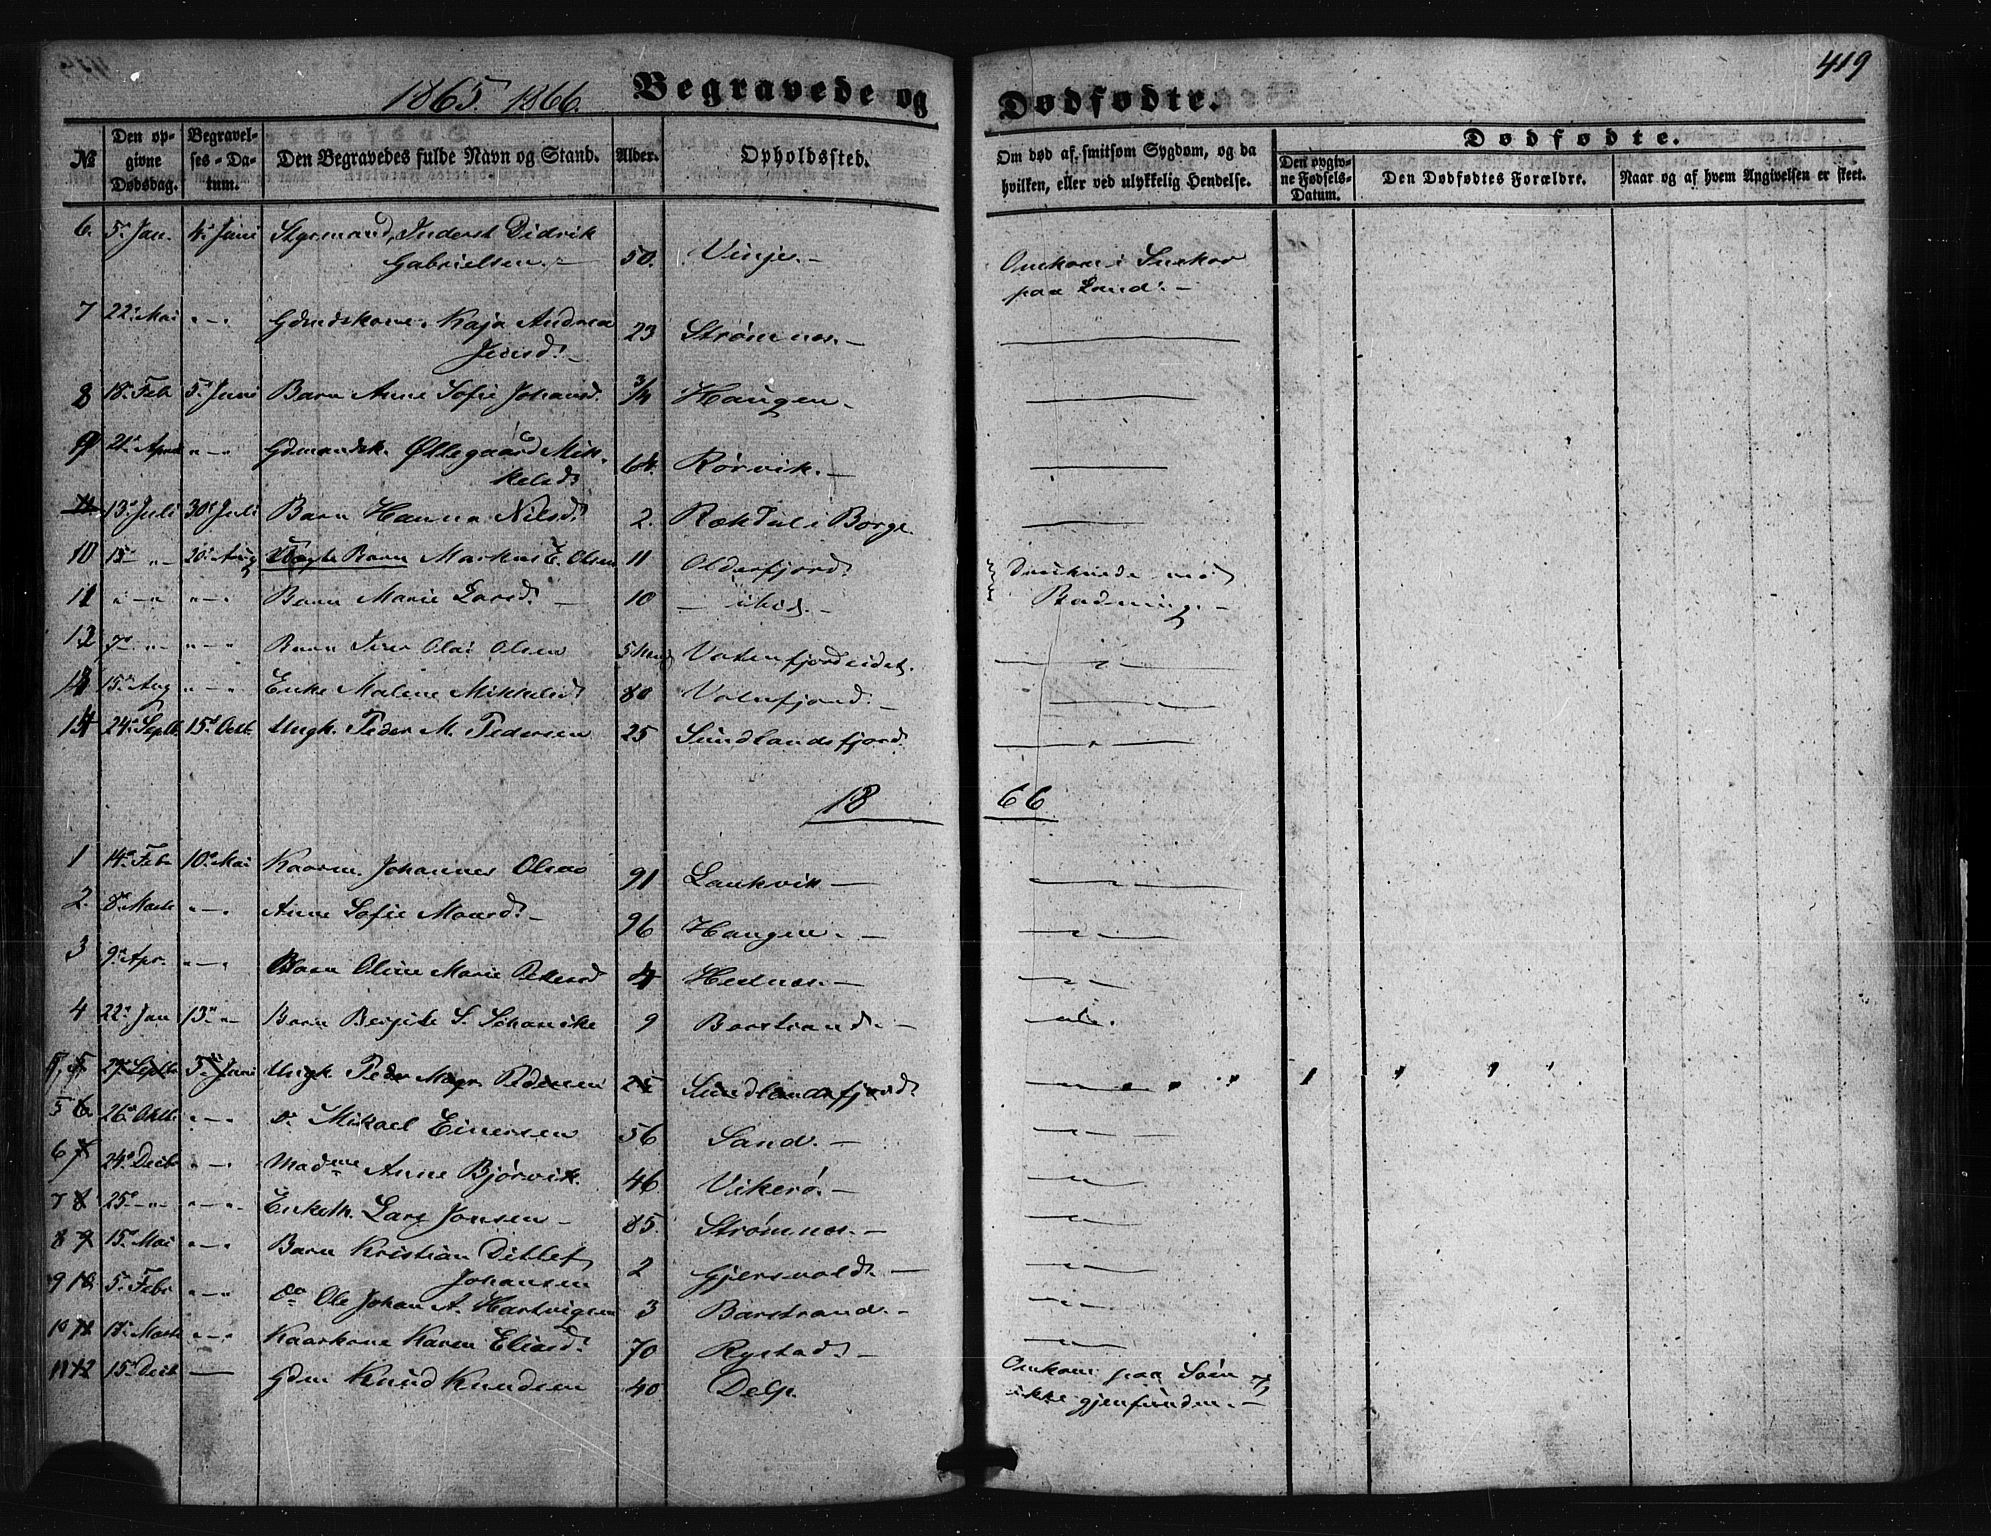 1865. 1866. Begravede og Dødfødte. 419
№ Den opgivne Dødsdag. Begravelses-Datum. Den Begravedes fulde Navn og Stand. Alder. Opholdssted. Om død af smitsom Sygdom, og da hvilken, eller ved ulykkelig Hendelse. Dødfødte.
Den opgivne Fødsels-Datum. Den Dødfødtes Forældre. Naar og af hvem Angivelsen er skeet.
6. 5 Jan. 4 Juni Styrmand, Inderst Didrik
Gabrielsen. 50. Vinje. Omkom i Snekav
paa Land.
7 22 Mai " — " Gdmdskone Kaja Andrea
Jensd. 23 Strømnes.
8 18 Feb 5 Juni Barn Anne Sofie Johansd. 3/4 Haugen.
9 21 April " — " Gdmandsk. Øllegaard Mik-
kelsd. 64. Rørvik.
11. 13 Juli 30 Juli Barn Hanna Nilsd. 2. Ræktal i Borge
10 15 " 20 Aug Barn Markus E. Olsen 11 Olderfjord. Druknede ved
11 " — " " — " Barn Marie Larsd. 10 — ibid. — Badning. —
12 7 — " " — " Barn Iver Olai Olsen 5 Vatenfjordeidet.
13 15 Aug " — " Enke Malene Mikkelsd. 80 Vatnfjord.
14 24 Septb. 15 Octb. Ungk. Peder M. Pedersen 25 Sundlandsfjord.
18 66
1 14 Feb 10 Mai Kaarm. Johannes Olsen 91 Laukvik
2. 8 Marts " — " Anne Sofie Monsd. 96 Haugen.
3 9 Apr. " — " Barn Oline Marie Pedersd 4 Hednes.
4 22 Jan 13 " Barn Bergite S. Schanike 9 Barstrand.
5 29 Septb 3 Juni Ungk. Peder Magn Pedersen 25 Sundlandsfjord.
5 6. 26 Oktb " — " Do Mikael Einersen 56 Sand.
6 7 24 Decb " — " Madme Anne Bjørvik. 46 Vikerø.
7 8 25 — " " — " Enkem. Lars Jonsen 85. Strømnes.
8 9 15 Mai " — " Barn Kristian Ditlef
Johansen 2 Gjersvold.
9 10 5 Feb. " — " Do Ole Johan A. Hartvigsen 3 Barstrand.
10 11 17 Marts " — " Kaarkone Karen Eliasd. 70 Rystad.
11 12 15 Decb — Gdm Knud Knudsen 40 Delp. Omkom paa Søen
ikke gjenfunden.